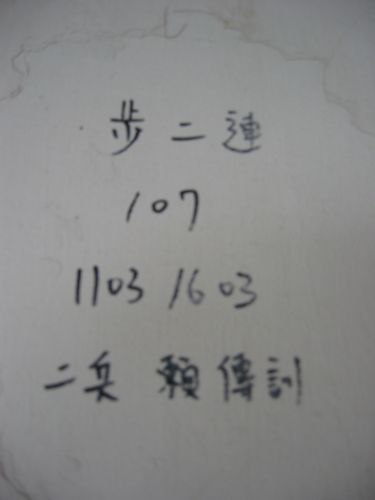 步二連
107
1103 1603
二兵 賴傳訓